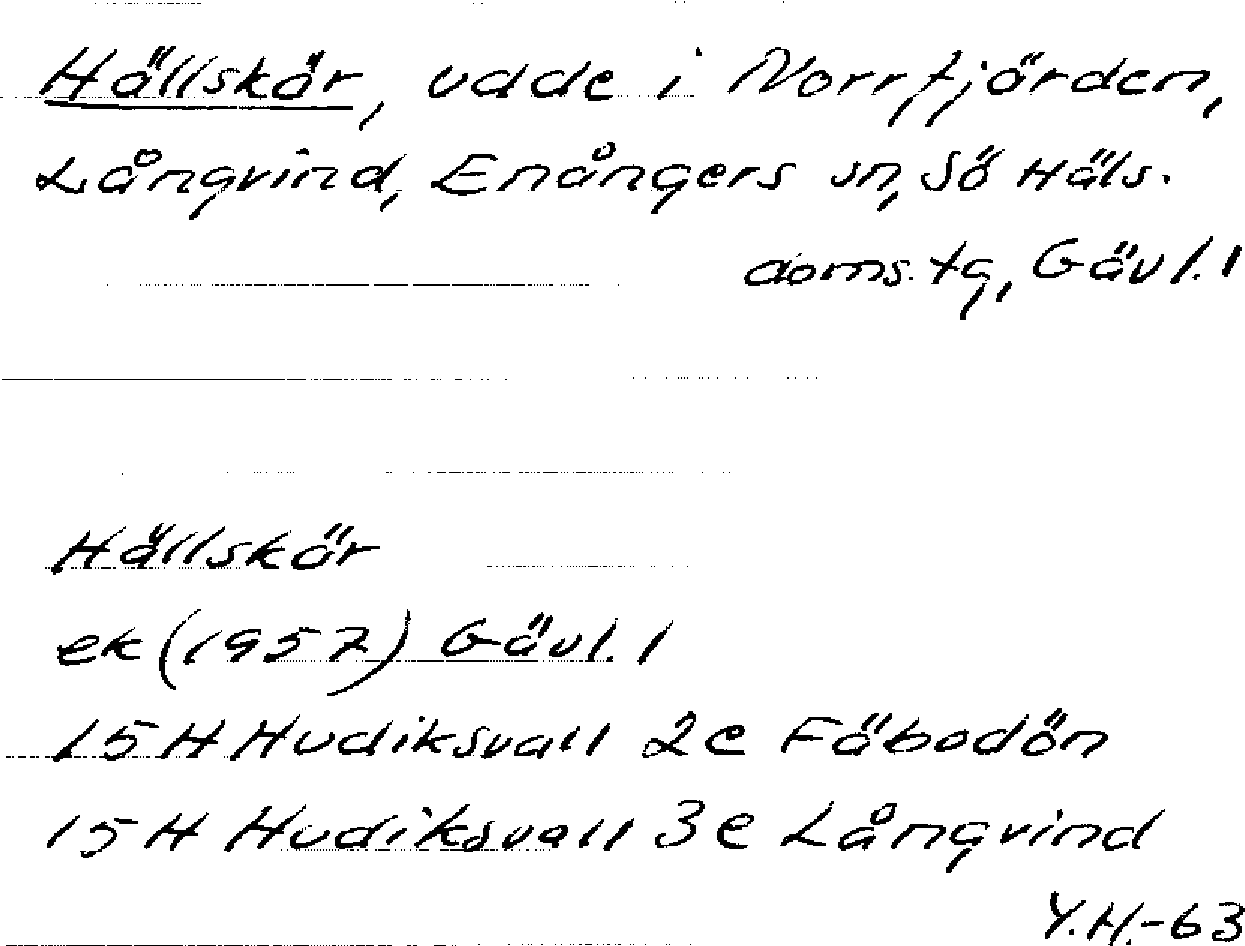 Hällskär, udde i Norrfjärden,
Långvind, Enångers sn, Sö Häls.
doms. tg, Gävl. l
Hällskär
ek (1957) Gävl. l
15 H Hudiksvall 2e Fäbodön
15 H Hudiksvall 3e Långvind
Y.H.-63